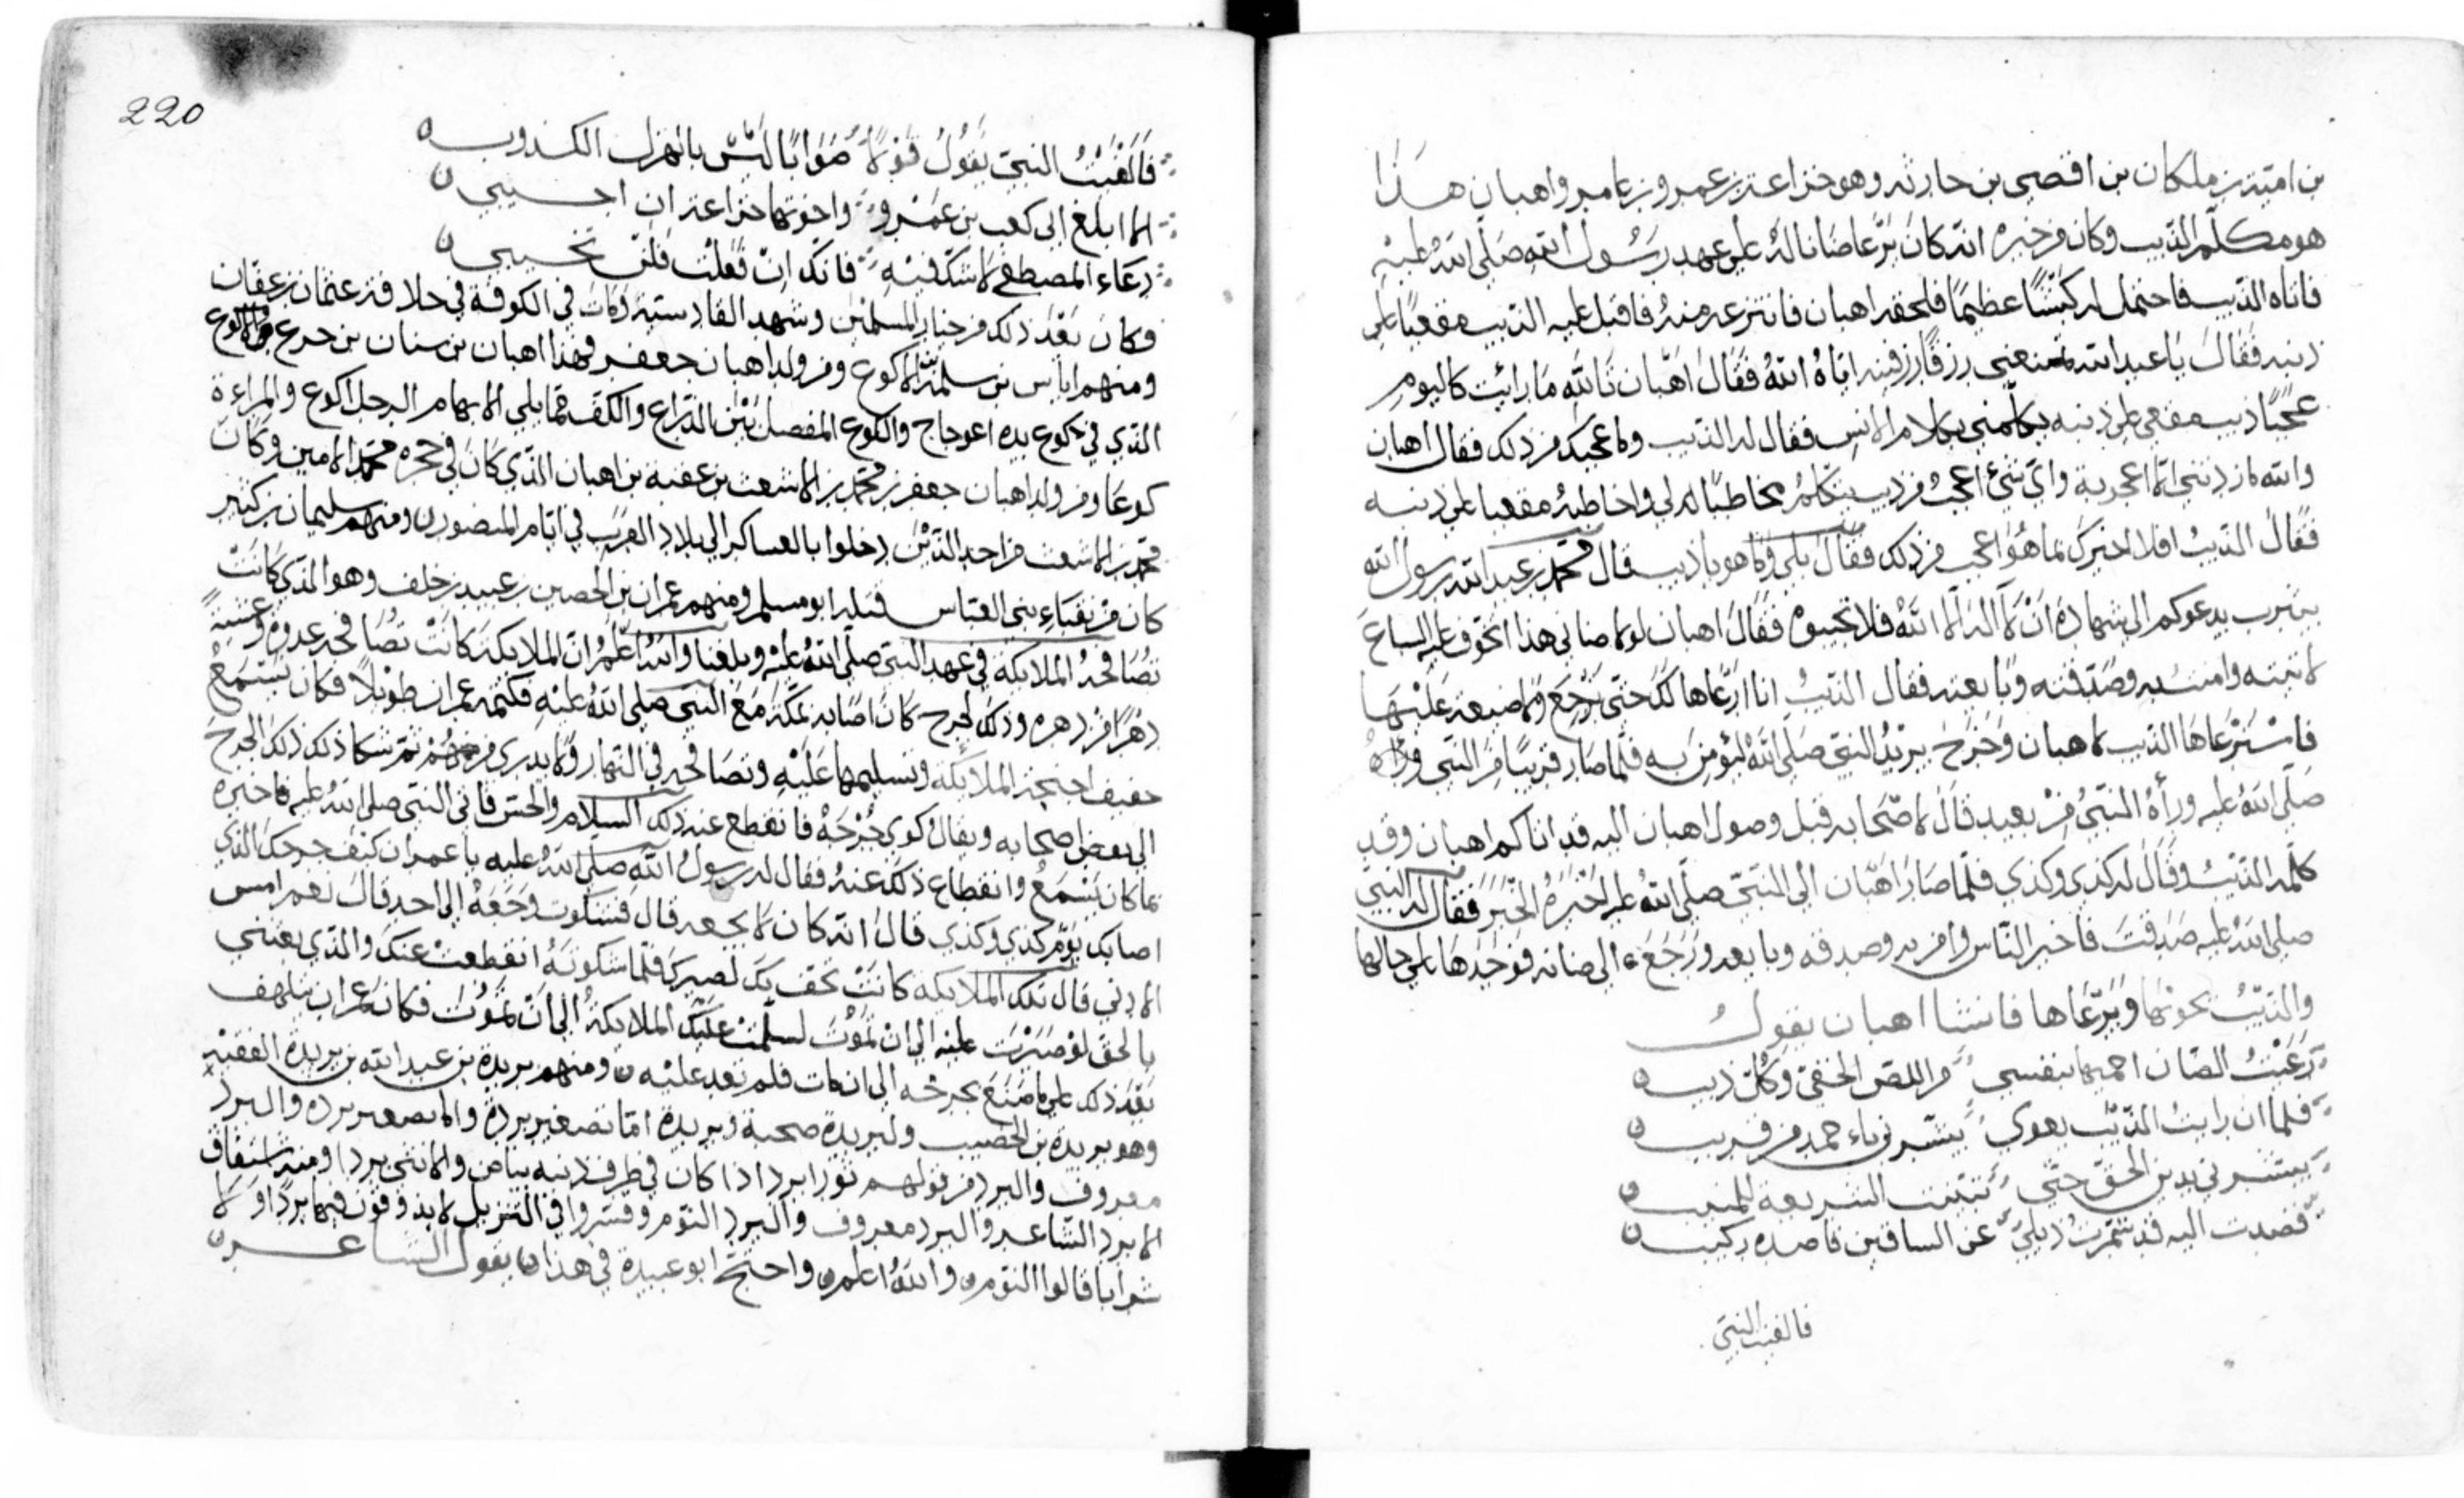 بن امية بن ملكان بن اقصى بن حارثه وهو خزاعة بن عمرو بن عامر واهبان هذا
هو مكلّم الذيب وكان من خبره انه كان يرعا ضانا له على عهد رسول الله صلى الله عليه
فاتاه الذيب فاحتمل له كبشًا عظيمًا فلحقه اهبان فانتزعه منه فاقبل عليه الذيب مقعيًا على
ذنبه فقال يا عبد الله تمنعني رزقًا رزقنيه اياه الله فقال اهبان تالله ما رايت كاليوم
عجبًا ذيب مقعي على ذنبه يكلمني بكلام الانس فقال له الذيب وما عجبك من ذلك فقال اهبان
والله ما زدتني الا اعجوبة واي شئ اعجب من ذيب يتكلم مخاطبًا لي واخاطبه مقعيا على ذنبه
فقال الذيب افلا اخبرك بما هو اعجب من ذلك فقال بلى وما هو يا ذيب قال محمد بن عبد الله رسول الله
بيثرب يدعوكم الى شهادة ان لا اله الا الله فلا تجيبوه فقال اهبان لولا ضاني هذا اتخوف عليه السباع
لاتيته وامنت به وصدقته وبايعته فقال الذيب انا ارعاها لك حتى ترجع ولا ضيعة عليها
فاسترعاها الذيب لاهبان وخرج يريد النبي صلى الله ليؤمن به فلما صار قريبًا من النبي وراه
صلى الله عليه وراه النبي من بعيد قال لاصحابه قبل وصول اهبان اليه قد اتاكم اهبان وقد
كلمه الذيب وقال له كذى وكذى فلما صار اهبان الى النبي صلى الله عليه اخبره الخبر فقال له النبي
صلى الله عليه صدقت فاخبر الناس وامن به وصدقه وبايعه ورجع الى ضانه فوجدها على حالها
والذيب يحوطها ويرعاها فانشا اهبان يقول
رعيت الضان احميها بنفسي من اللص الخفي وكل ذيب
فلما ان رايت الذيب يعوي يبشرني باحمد من قريب
يبشرني بدين الحق حتى تبينت الشريعة للمنيب
قصدت اليه قد شمرت ذيلي عن الساقين قاصده ركيب
فالفيت النبي
220
فالفيت النبي يقول قولاً صوابًا ليس بالهزل الكذوب
الا ابلغ الى كعب بن عمرو واخوتها خزاعة ان اجيبي
دعاء المصطفى لا شك فيه فانك ان فعلت فلن تخيبي
فكان بعد ذلك من خيار المسلمين وشهد القادسية ومات في الكوفة في خلافة عثمان بن عفان
ومنهم اياس بن سلمة بن الاكوع ومن ولد اهبان جعفر فهذا اهبان بن سنان بن جرع والاكوع
الذي في كوع يده اعوجاج والكوع المفصل بين الذراع والكف مما يلي الابهام الرجل اكوع والمراءة
كوعا ومن ولد اهبان جعفر بن محمد بن الاشعث بن عقبة بن اهبان الذي كان في حجره محمد الامين وكان
محمد بن الاشعث من احد الذين دخلوا بالعساكر الى بلاد الغرب في ايام المنصور ومنهم سليمان بن كثير
كان من نقباء بني العباس قتله ابو مسلم ومنهم عمران بن الحصين بن عبيد بن خلف وهو الذي كانت
تصافحه الملايكة في عهد النبي صلى الله عليه وبلغنا والله اعلم ان الملايكة كانت تصافحه غدوة وعشية
دهرًا من دهره وذلك لجرح كان اصابه بمكة مع النبي صلى الله عليه فكتمه عمران طويلاً فكان يستمع
حفيف اجنحة الملايكة وتسليمها عليه وتصافحه في النهار ولا يدري من هم ثم شكا ذلك ذلك الجرح
الى بعض اصحابه ويقال كوى جرحه فانقطع عنه ذلك السلام والحس فاتى النبي صلى الله عليه فاخبره
بما كان يسمع وانقطاع ذلك عنه فقال له رسول الله صلى الله عليه يا عمران كيف جرحك الذي
اصابك يوم كذى وكذى قال انه كان لا يجعه قال فشكوت وجعه الى احد قال نعم امس
الادنى قال تلك الملايكه كانت تحف بك لصبرك فلما شكوته انقطعت عنك والذي بعثني
بالحق لو صبرت عليه الى ان تموت لسلمت عليك الملايكة الى ان تموت فكان عمران يتلهف
بعد ذلك على ما صنع بجرحه الى ان مات فلم تعد عليه ومنهم بريدة بن عبد الله بن بريدة الفقيه
وهو بريدة بن الحصيب ولبريدة صحبة وبريدة اما تصغير بردة والا تصغير برده والبرد
معروف والبرد من قولهم ثورا برد اذا كان في طرف ذنبه بياض والانثى بردا ومنه اشتقاق
الابرد الشاعر والبرد معروف والبرد النوم وفسروا في التنزيل لا يذوقون فيها بردًا ولا
شرابا قالوا النوم والله اعلم واحتج ابو عبيدة في هذا بقول الشاعر